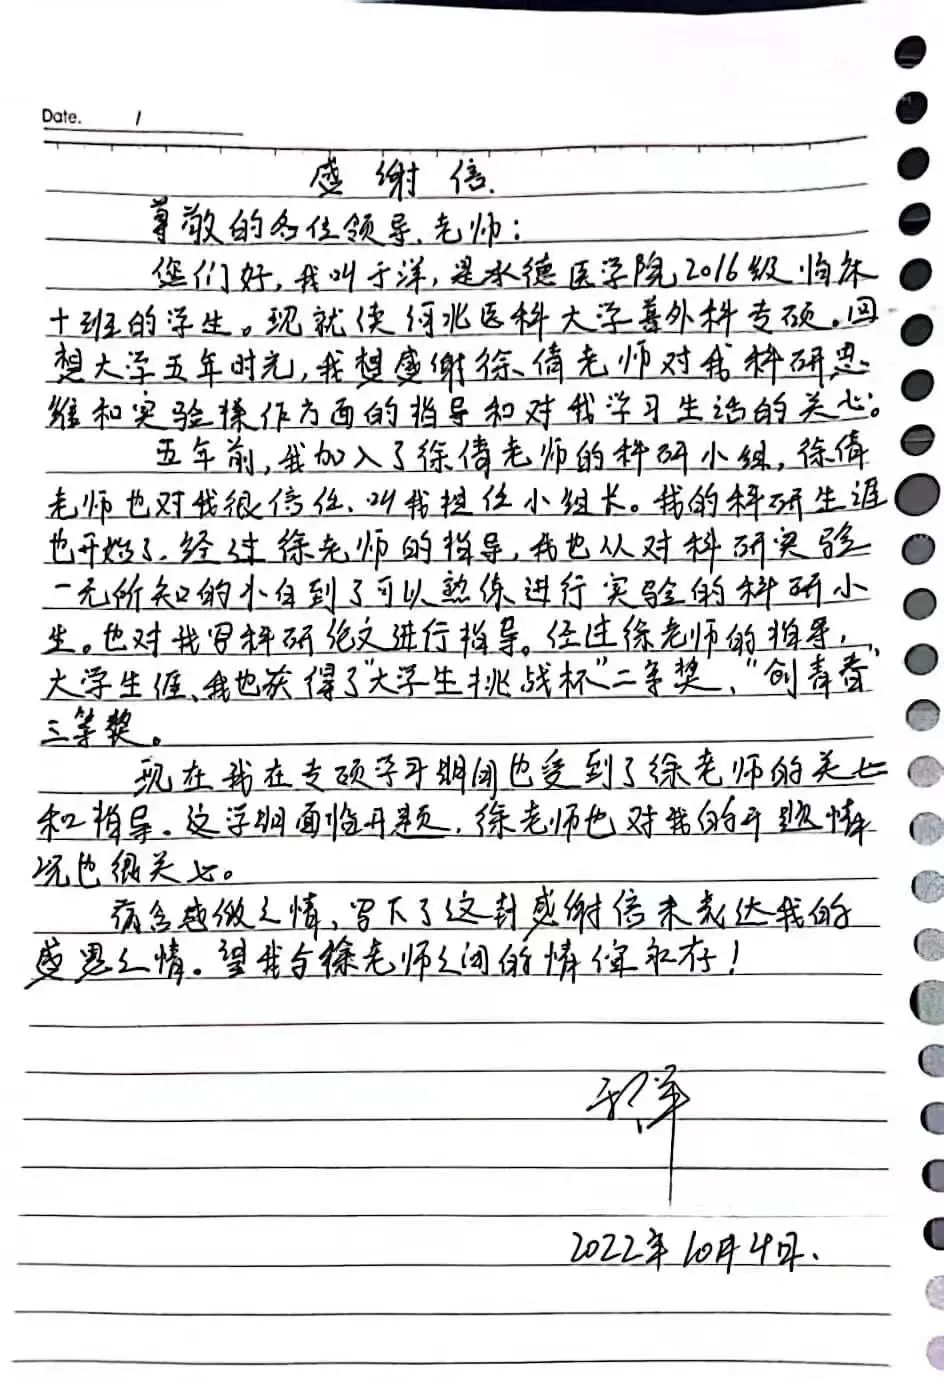 Date. 1
感谢信.
尊敬的各位领导、老师:
您们好,我叫于洋,是承德医学院2016级临床
十班的学生。现就读河北医科大学普外科专硕。回
想大学五年时光,我想感谢徐倩老师对我科研思
维和实验操作方面的指导和对我学习生活的关心。
五年前,我加入了徐倩老师的科研小组,徐倩
老师也对我很信任、叫我担任小组长。我的科研生涯
也开始了.经过徐老师的指导,我也从对科研实验
一无所知的小白到了可以熟练进行实验的科研小
生。也对我写科研论文进行指导。经过徐老师的指导,
大学生涯、我也获得了"大学生挑战杯"二等奖、"创青春"
三等奖。
现在我在专硕学习期间也受到了徐老师的关心
和指导。这学期面临开题,徐老师也对我的开题情
况也很关心。
满含感激之情,写下了这封感谢信来表达我的
感恩之情。望我与徐老师之间的情谊永存!
于洋
2022年10月4日.